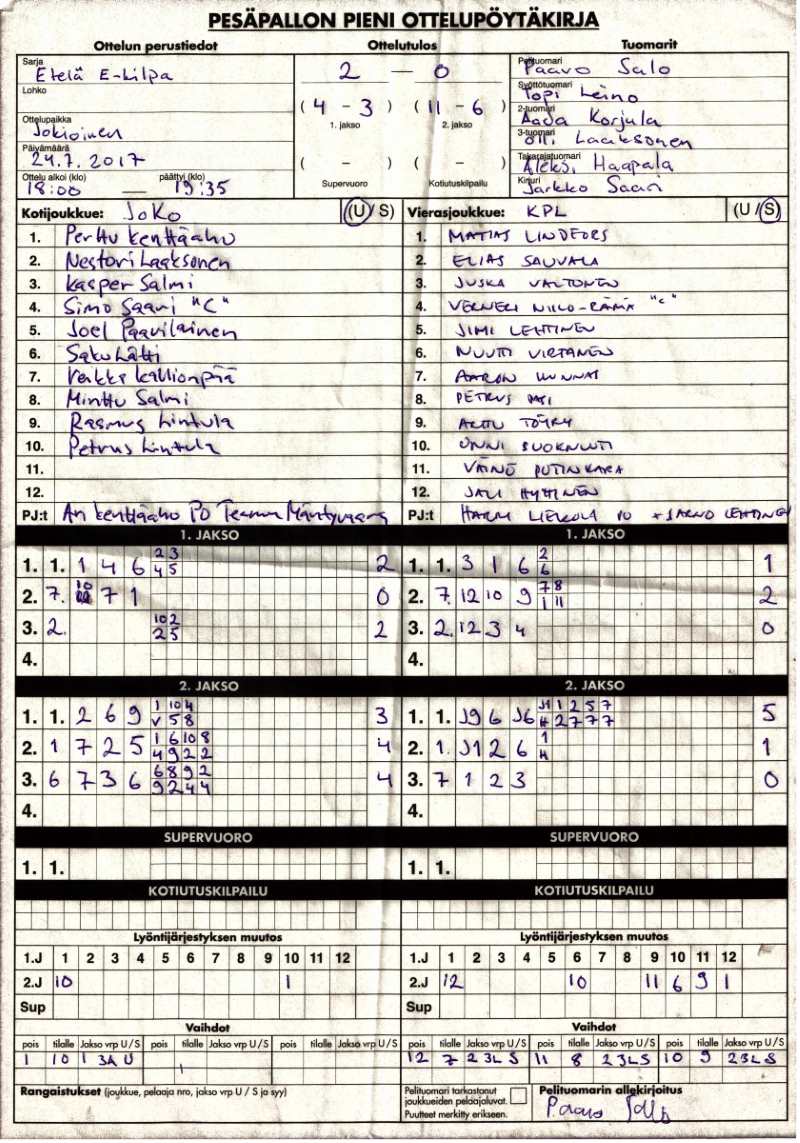 PESÄPALLON PIENI OTTELUPÖYTÄKIRJA
Ottelun perustiedot Ottelutulos Tuomarit
Sarja Etelä E-kilpa
Lohko
Ottelupaikka Jokioinen
Päivämäärä 24.7.2017
Ottelu alkoi (klo) päättyi (klo)
18:00 — 19:35
2 — 0
(4 - 3) (11 - 6)
1. jakso 2. jakso
( - ) ( - )
Supervuoro Kotiutuskilpailu
Pelituomari Paavo Salo
Syöttötuomari Topi Leino
2-tuomari Aada Korjula
3-tuomari Olli Laaksonen
Takarajatuomari Aleksi Haapala
Kirjuri Jarkko Saari
Kotijoukkue: JoKo (U / S)
1. Perttu Kenttäaho
2. Nestori Laaksonen
3. Kasper Salmi
4. Simo Saari "C"
5. Joel Paavilainen
6. Saku Lätti
7. Veikki Kallionpää
8. Minttu Salmi
9. Rasmus Lintula
10. Petrus Lintula
11.
12.
PJ:t Ari Kenttäaho PO Teemu
Vierasjoukkue: KPL (U / S)
1. MATIAS LINDFORS
2. ELIAS SAUVALA
3. JUSKA VALTONEN
4. VERNERI NIILO-RÄMÄ "C"
5. JIMI LEHTINEN
6. NUUTTI VIRTANEN
7. AARON
8. PETRUS
9. ARTTU TÖYRY
10. ONNI SUOKNUUTI
11. VÄINÖ PUTINKARA
12. JALI HYTTINEN
PJ:t HARRI PO + JARNO LEHTINEN
1. JAKSO
1. 1. 1 4 6 2 3 2
4 5
2. 7. 10 7 1 0
3. 2. 10 2 2
2 5
4.
1. JAKSO
1. 1. 3 1 6 2 1
6
2. 7. 12 10 9 7 8 2
1 11
3. 2. 12 3 4 0
4.
2. JAKSO
1. 1. 2 6 9 1 10 4 3
V 5 8
2. 1 7 2 5 1 6 10 8 4
4 9 2 2
3. 6 7 3 6 6 8 9 2 4
9 2 4 4
4.
2. JAKSO
1. 1. J9 6 J6 J1 1 2 5 7 5
H 2 7 7 7
2. 1. J1 2 6 1 1
H
3. 7 1 2 3 0
4.
SUPERVUORO SUPERVUORO
1. 1. 1. 1.
KOTIUTUSKILPAILU KOTIUTUSKILPAILU
Lyöntijärjestyksen muutos Lyöntijärjestyksen muutos
1.J 1 2 3 4 5 6 7 8 9 10 11 12
2.J 10 1
Sup
1.J 1 2 3 4 5 6 7 8 9 10 11 12
2.J 12 10 11 6 9 1
Sup
Vaihdot Vaihdot
pois tilalle Jakso vrp U / S pois tilalle Jakso vrp U / S pois tilalle Jakso vrp U / S
1 10 1 3A U
pois tilalle Jakso vrp U / S pois tilalle Jakso vrp U / S pois tilalle Jakso vrp U / S
12 7 2 3L S 11 8 2 3L S 10 9 2 3L S
Rangaistukset (joukkue, pelaaja nro, jakso vrp U / S ja syy)
Pelituomari tarkastanut
joukkueiden pelaajaluvat.
Puutteet merkitty erikseen.
Pelituomarin allekirjoitus
Paavo Salo